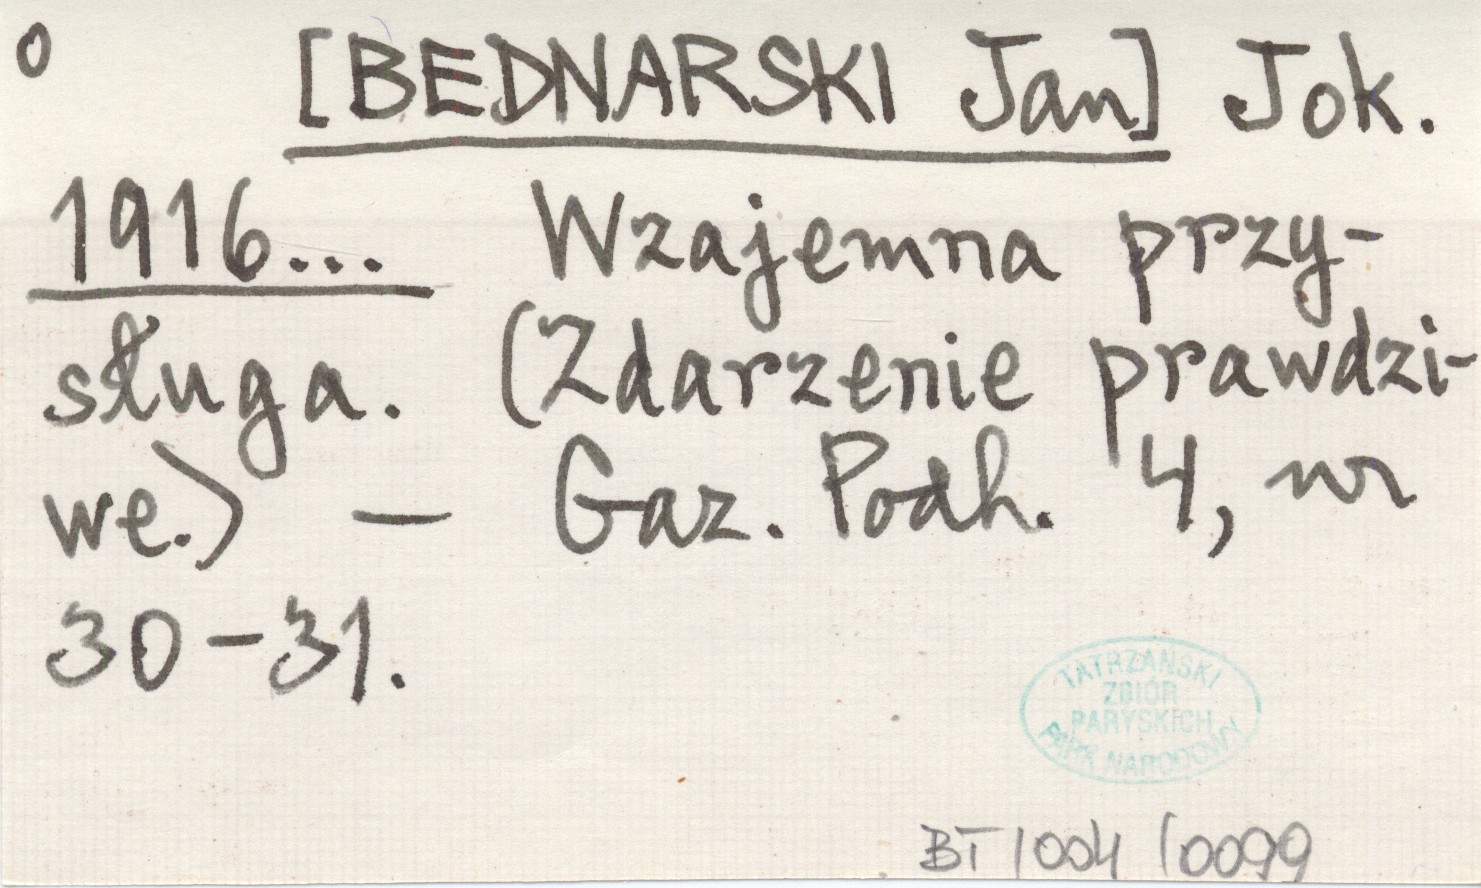 0
[BEDNARSKI Jan] Jok.
1916... Wzajemna przy-
sługa. (Zdarzenie prawdzi-
we.) — Gaz. Podh. 4, nr
30-31.
TATRZAŃSKI
ZBIÓR
PARYSKICH
PARK NARODOWY
BT 1004 / 0099